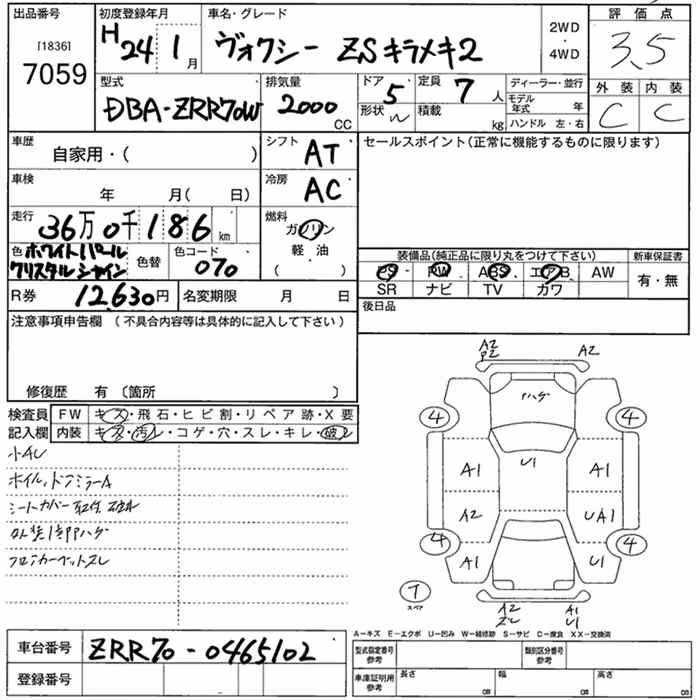 出品番号
[1836]
7059
初度登録年月
H 24 1 月
車名・グレード
ヴォクシー ZSキラメキ2
2WD
・
4WD
評価点
3.5
型式
DBA-ZRR70W
排気量
2000
CC
ドア
5
形状
定員
7 人
積載
kg
ディーラー・並行
モデル年式 年
ハンドル 左・右
外装 内装
C C
車歴
自家用・( )
シフト
AT
セールスポイント(正常に機能するものに限ります)
車検
年 月( 日)
冷房
AC
走行
36万0千186 km
燃料
ガソリン
軽油
( )
色 ホワイトパール
クリスタルシャイン
色替
色コード
070
装備品(純正品に限り丸をつけて下さい)
新車保証書
PS PW ABS エアB AW
SR ナビ TV カワ
有・無
R券 12,630円
名変期限 月 日
後日品
注意事項申告欄 (不具合内容等は具体的に記入して下さい)
修復歴 有 〔箇所 〕
検査員
記入欄
FW キズ・飛石・ヒビ割・リペア跡・X要
内装 キズ・汚レ・コゲ・穴・スレ・キレ・破レ
小AU
ホイル、ドアミラーA
シートカバー取付
外装1部ハゲ
フロアカーペットスレ
A2
P2
A2
ハゲ
4 4
U1
A1 A1
A2 UA1
4 4
A1 U1
T
スペア
A2
A1
U1
A-キズ E-エクボ U-凹み W-補修跡 S-サビ C-腐食 XX-交換済
車台番号 ZRR70-0465102
登録番号
型式指定番号
参考
類別区分番号
参考
車庫証明用
参考
長さ cm
幅 cm
高さ cm